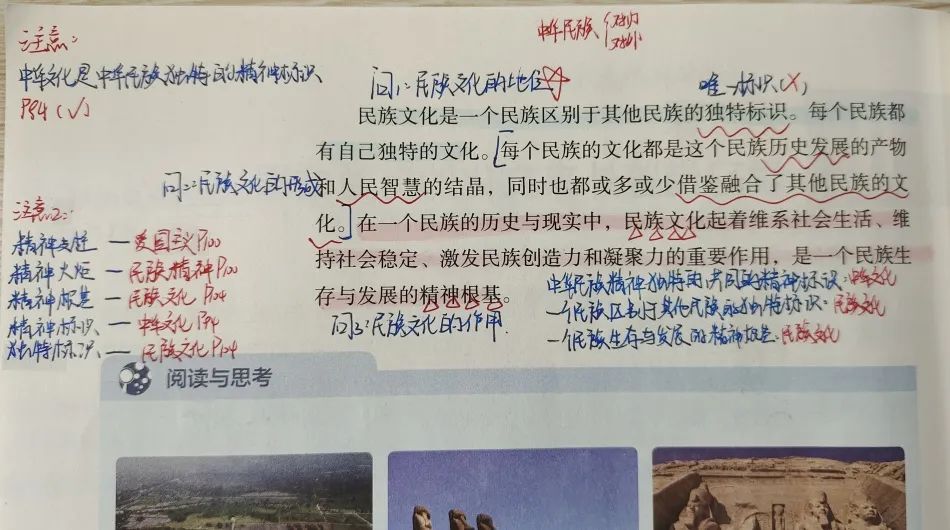 注意:
中华文化是中华民族独特的精神标识
P94(√)
中华民族{对内
对外
问1:民族文化的地位
唯一标识(×)
民族文化是一个民族区别于其他民族的独特标识。每个民族都
有自己独特的文化。每个民族的文化都是这个民族历史发展的产物
问2:民族文化的形成
和人民智慧的结晶,同时也都或多或少借鉴融合了其他民族的文
化。在一个民族的历史与现实中,民族文化起着维系社会生活、维
持社会稳定、激发民族创造力和凝聚力的重要作用,是一个民族生
存与发展的精神根基。
问3:民族文化的作用
注意2:
精神支柱—爱国主义P100
精神火炬—民族精神P100
精神根基—民族文化P104
精神标识—中华文化P94
独特标识—民族文化P104
中华民族精神独特的共同的精神标识:中华文化
一个民族区别于其他民族的独特标识:民族文化
一个民族生存与发展的精神根基:民族文化
阅读与思考